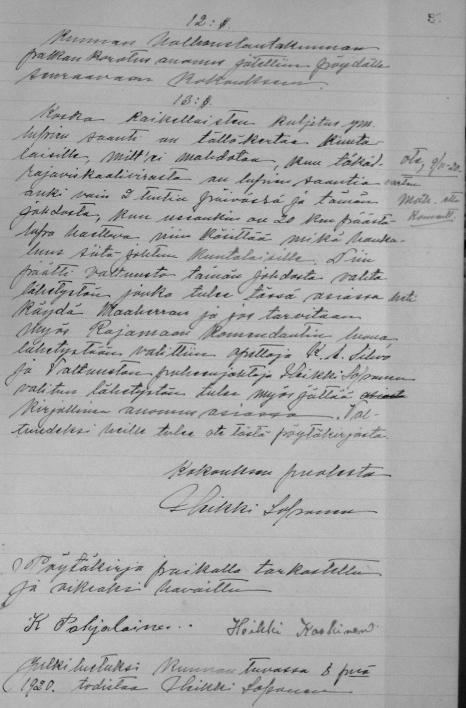 12:§.
Kunnan Valkauslautakunnan
palkan korotus anomus jätettiin pöydälle
seuraavaan Kokoukseen
13:§.
Koska kaikellaisten kuljetus ym.
lupien saanti on tällökertaa Kunta-
laisille, milt'ei mahdotoa, kun täkä-
rajavirkaaliviraston on lupien saantia varten
auki vain 2 tuntia päivässä ja tämän
johdosta, kun useankin on 20 km päästä
lupa haettava niin käsittää mikä hanka-
luus siitä johtuu kuntalaisille. Niin
päätti valtuusto tämän johdosta valita
lähetystön jonka tulee tässä asiassa heti
käydä Maaherran ja jos tarvitaan
myös Rajamaan komendantin luona
lähetystöön valittiin opettaja K. A. Silvo
ja Valtuuston puheenjohtaja Heikki Soppanen
valitun lähetystön tulee myös jättää
kirjallinen anomus asiassa. Val-
tuudeksi heille tulee ote tästä pöytäkirjasta.
ote, 9/II-20.
Kokouksen puolesta
Heikki Soppanen
Pöytäkirja paikalla tarkastettu
ja oikeaksi havaittu
K Pohjalainen.. Heikki Koskinen
Julkiluetuksi Kunnan tuvassa 8 p:nä
1920. todistaa Heikki Soppanen